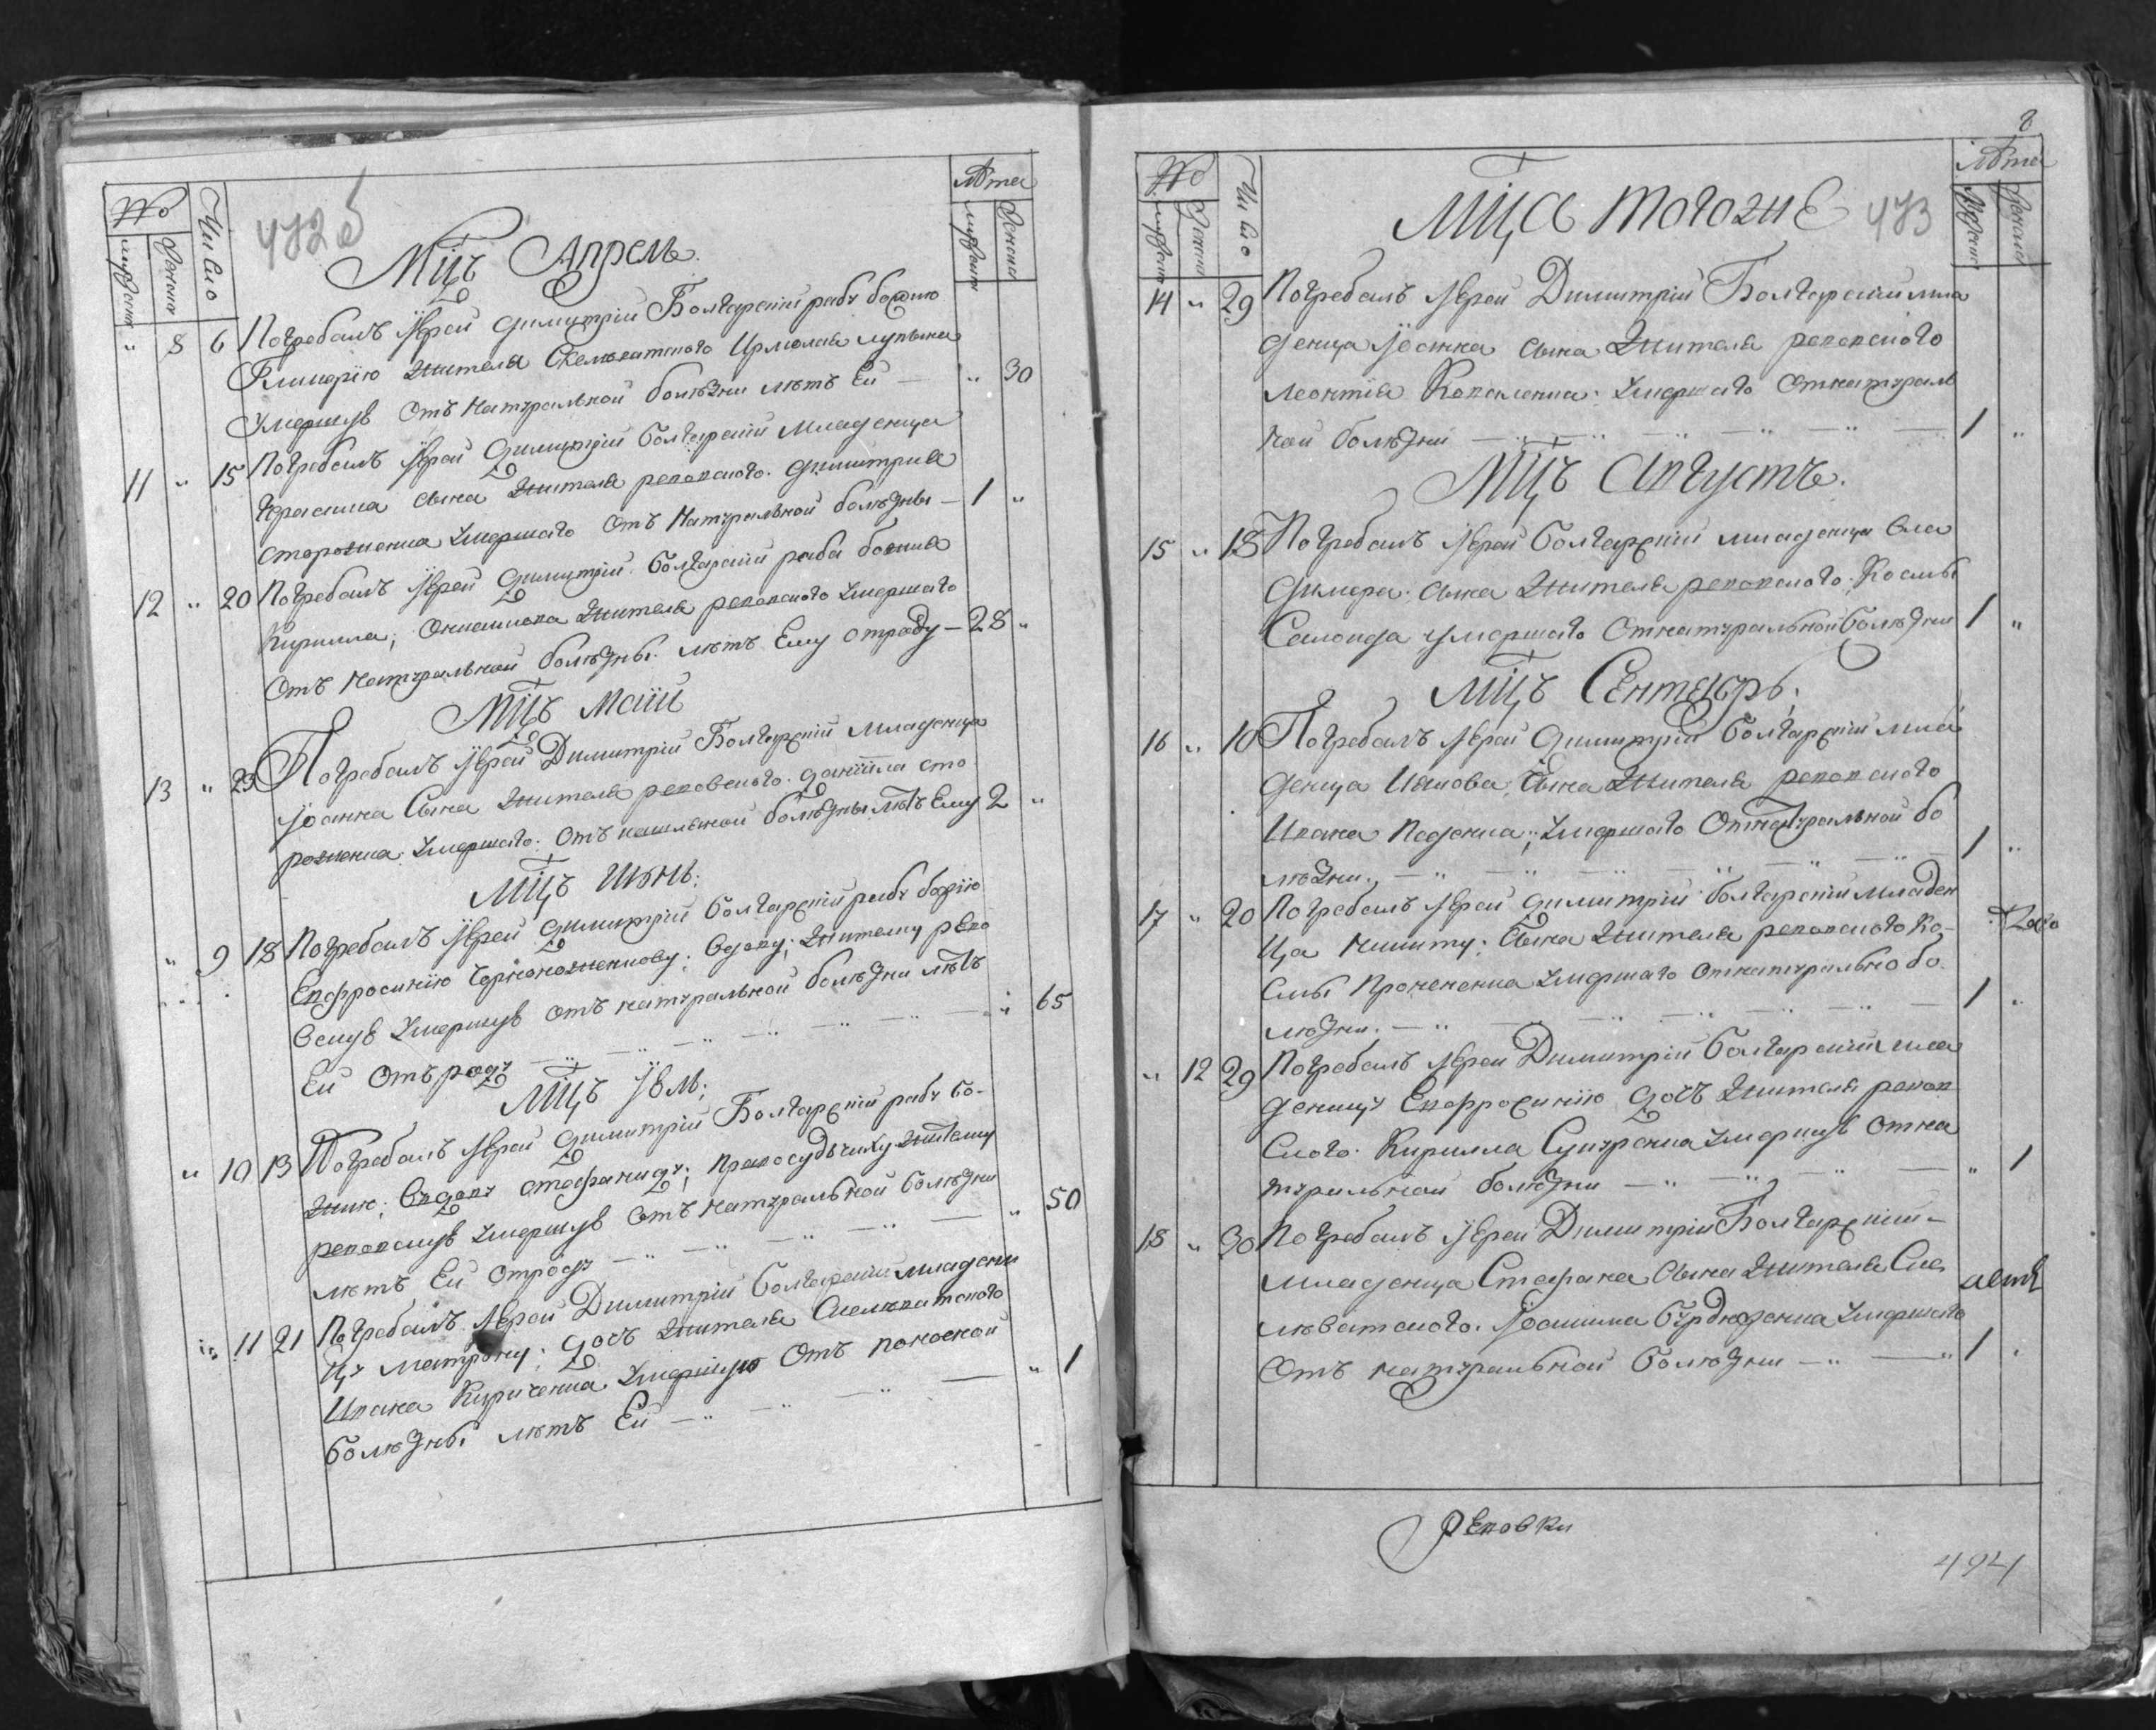 472 б
№ Число Лѣта
мужеска женска мужеск женска
Мц͠ъ Апрель
" 8 6 Погребалъ Іерей Димитрій Болгарскій рабу божию
Гликерію жителя Скелеватского Ирмолая
Умершуѣ отъ натуральной болѣзни лѣтъ Ей — " 30
11 " 15 Погребалъ Іерей Димитрій Болгарскій младенца
Герасима сына жителя рековского Димитрия
Стороженка Умершаго отъ Натуральной болѣзны — 1 "
12 " 20 Погребалъ Іерей Димитрій Болгарскій раба божия
Кирилла, жителя рековского умершаго
отъ натуральной болѣзны лѣтъ Ему отроду — 28 "
Мц͠ъ Маій
13 " 23 Погребалъ Іерей Димитрій Болгарскій Младенца
Іоанна Сына жителя рековского Даніила сто
роженка Умершаго отъ кашляной болѣзны лѣтъ Ему 2 "
Мц͠ъ Июнь
" 9 18 Погребалъ Іерей Димитрій Болгарскій рабу божію
Евфросинію Черноноженкову; Вдову; жителку реко
вскуѣ Умершуѣ отъ натуральной болѣзни лѣтъ
Ей отъ роду — " — " — " 65
Мц͠ъ Іюль
" 10 13 Погребалъ Іерей Димитрій Болгарскій рабу бо-
жию; Вдову стефаниду;
рековскуѣ умершуѣ отъ натуральной болѣзни
лѣтъ Ей отроду — " — " — " 50
" 11 21 Погребалъ Іерей Димитрій Болгарскій младени
цу матрону; дочь жителя Скелеватского
Ивана Кириченка Умершую отъ поносной
болѣзны лѣтъ Ей — " — " — " 1
8
№ Число Лѣта
мужеска женска мужеск женска
Мц͠а Тогоже 473
14 " 29 Погребалъ Іерей Димитрій Болгарскій мла
денца Іоанна сына жителя рековского
Леонтія Коваленка; Умершаго отнатураль
ной болѣзни — " — " — " — 1 "
Мц͠ъ Августъ.
15 " 18 Погребалъ Іерей Болгарскій младенца Вла
димера; сына жителя рековского; Космы
умершаго отнатуральной болѣзни 1 "
Мц͠ъ Сентябрь;
16 " 10 Погребалъ Іерей Димитрій Болгарскій мла
денца Иякова; Сына жителя рековского
Ивана; Умершаго Отнатуральной бо
лѣзни. — " — " — " — 1 "
17 " 20 Погребалъ Іерей Димитрій Болгарскій Младен
ца Никиту; Сына жителя рековского Ко-
смы Прокененка умершаго отнатурально бо
лѣзни. — " — " — " — 1 "
" 12 29 Погребалъ Іерей Димитрій Болгарскій мла
деницу Евфросинію дочь жителя реков
ского Кирилла Супруненка умершуѣ отна
туральной болѣзни — " — " — " 1
18 " 30 Погребалъ Іерей Димитрій Болгарскій
младенца Стефана сына жителя Ске
леватского Іоакима умершаго
отъ натуральной болѣзни — " — " 1 "
рековки
494